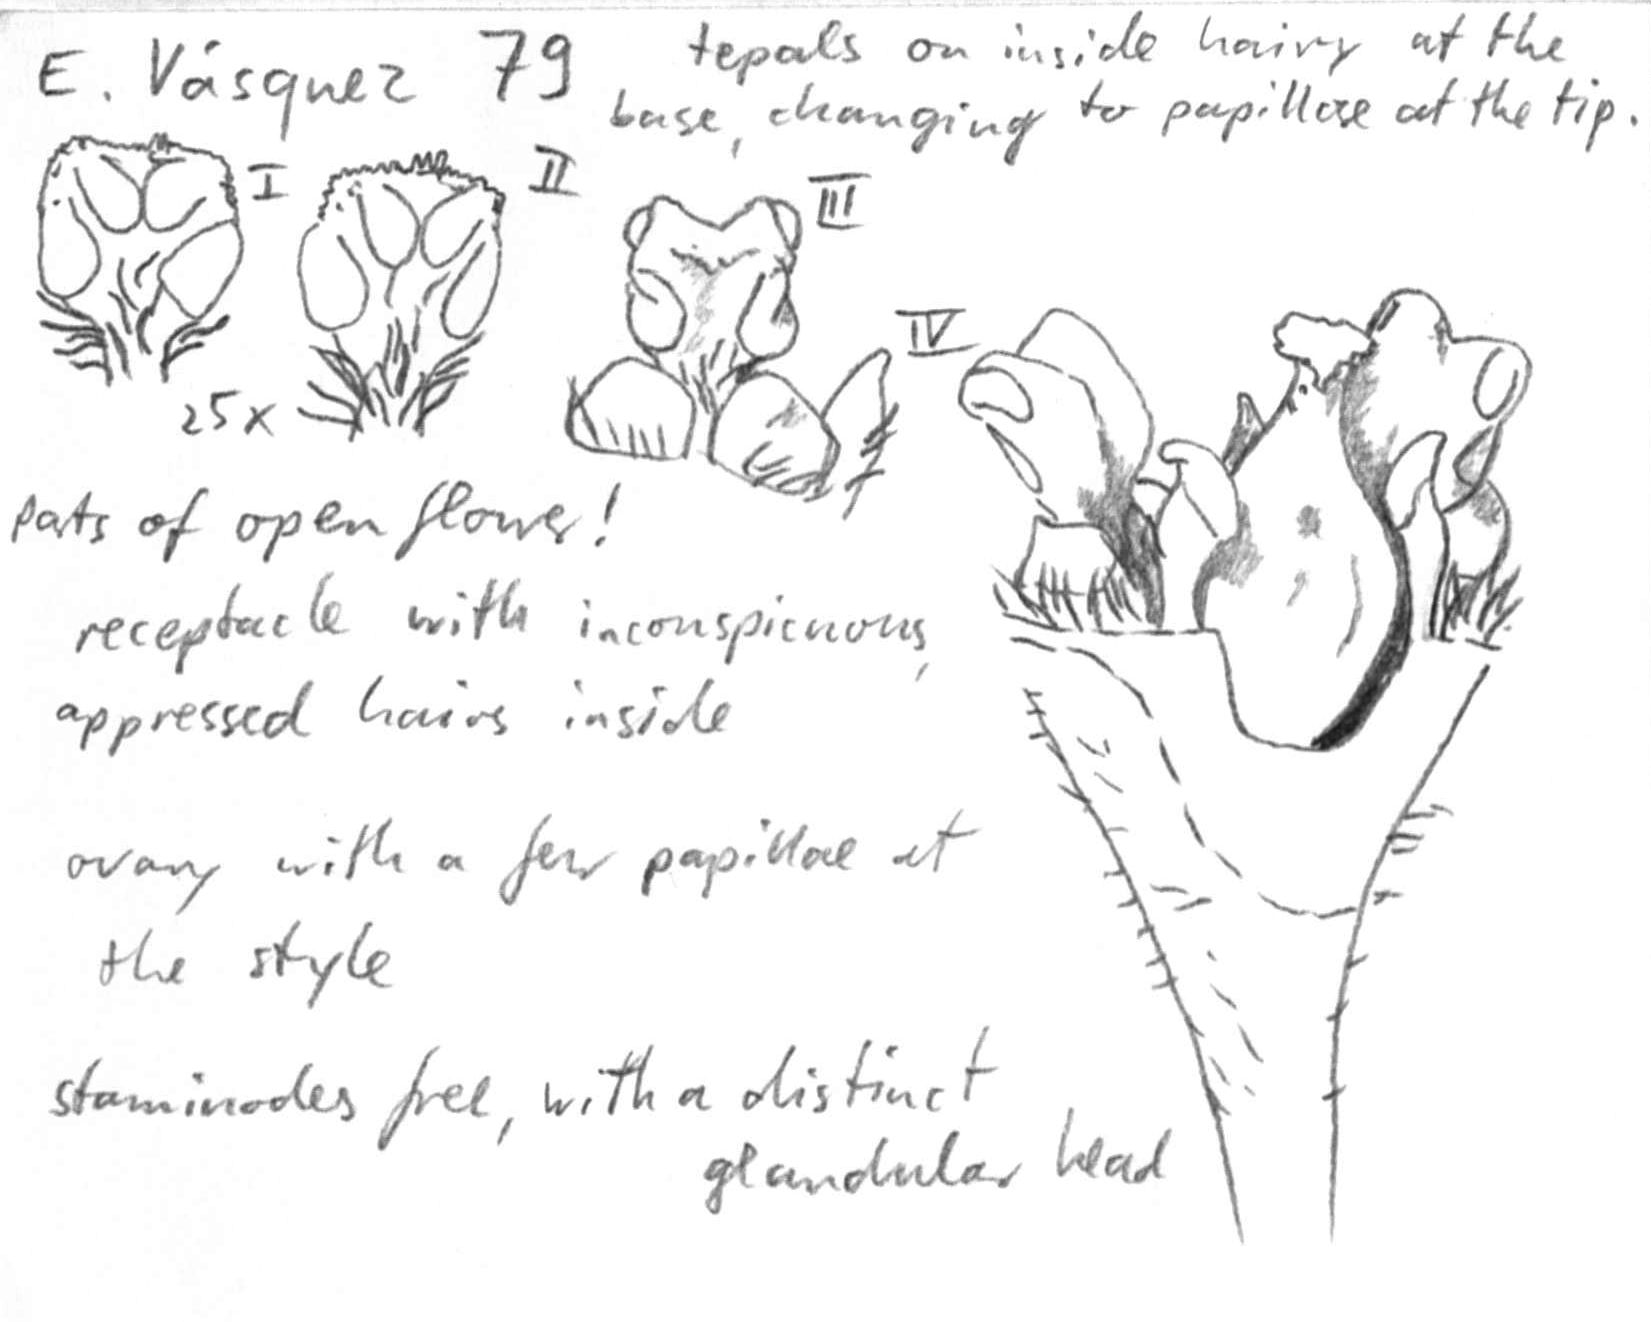 E. Vásquez 79
tepals on inside hairy at the
base, changing to papillose at the tip.
I
II
III
IV
25x
parts of open flower!
receptacle with inconspicuous,
appressed hairs inside
ovary with a few papillae at
the style
staminodes free, with a distinct
glandular head